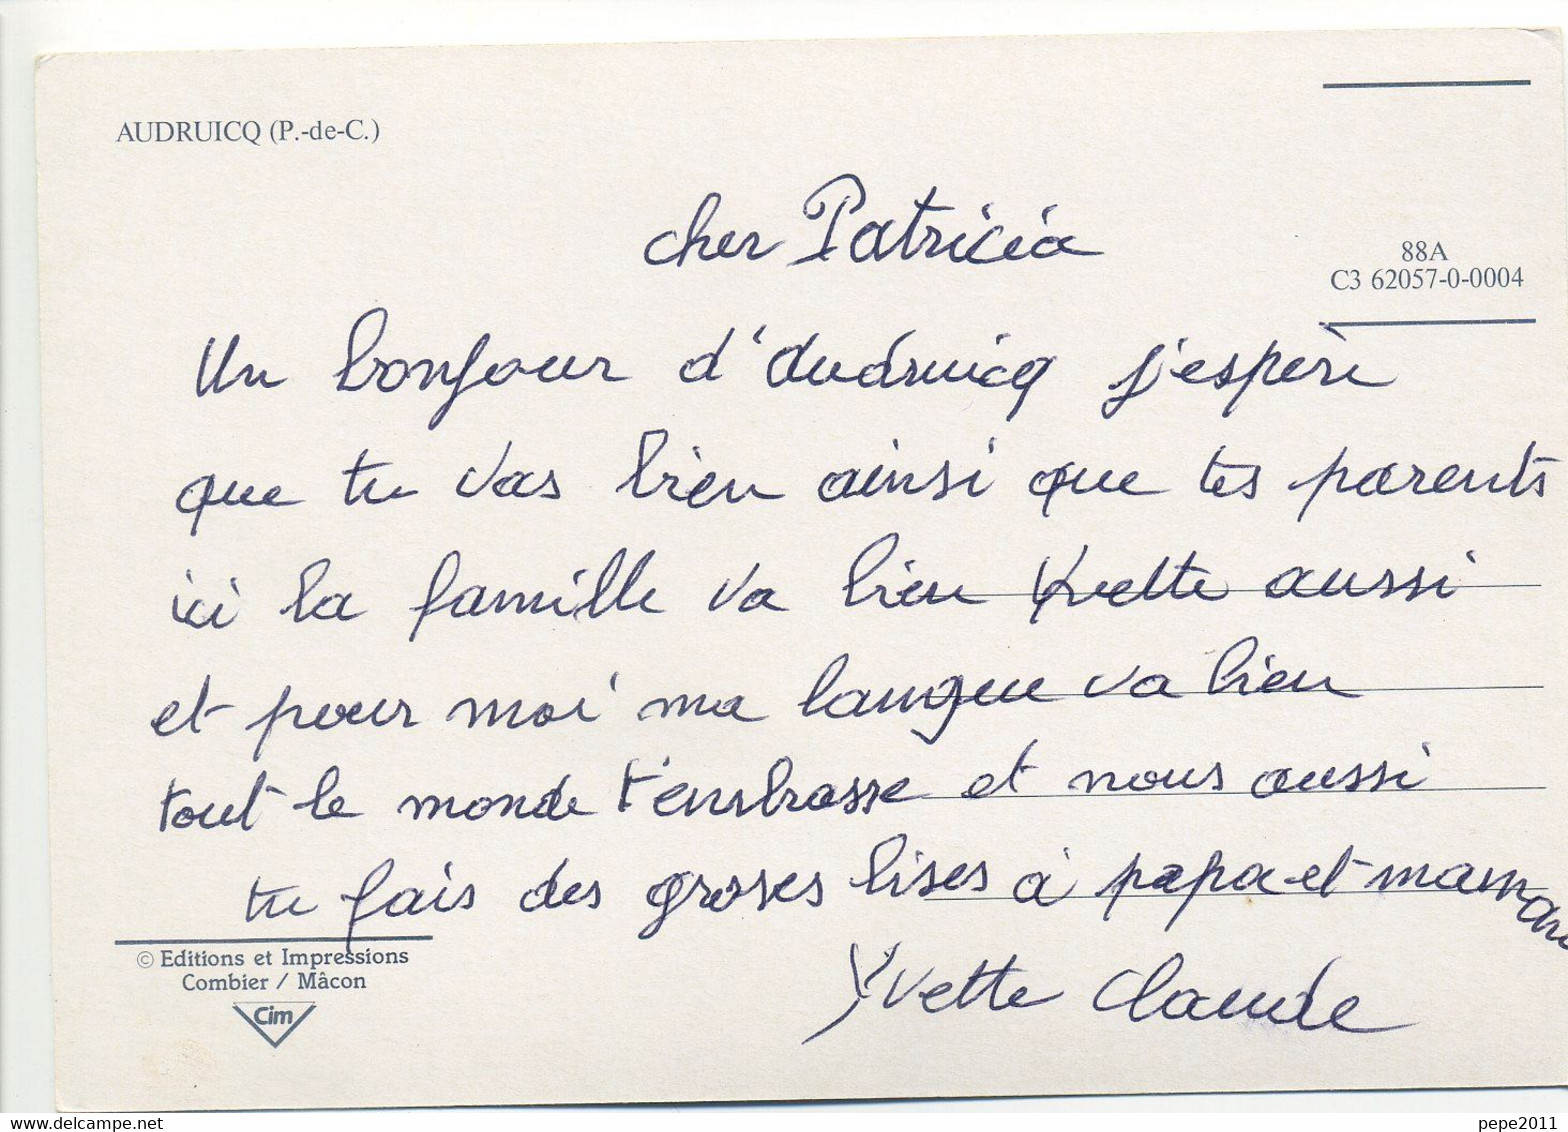 AUDRUICQ (P.-de-C.)
88A
C3 62057-0-0004
cher Patricia
Un bonjour d'Audruicq j'espère
que tu vas bien ainsi que tes parents
ici la famille va bien Yvette aussi
et pour moi ma langue va bien
tout le monde t'embrasse et nous aussi
tu fais des groses bises à papa et maman
Yvette Claude
© Editions et Impressions
Combier / Mâcon
Cim
www.delcampe.net
pepe2011